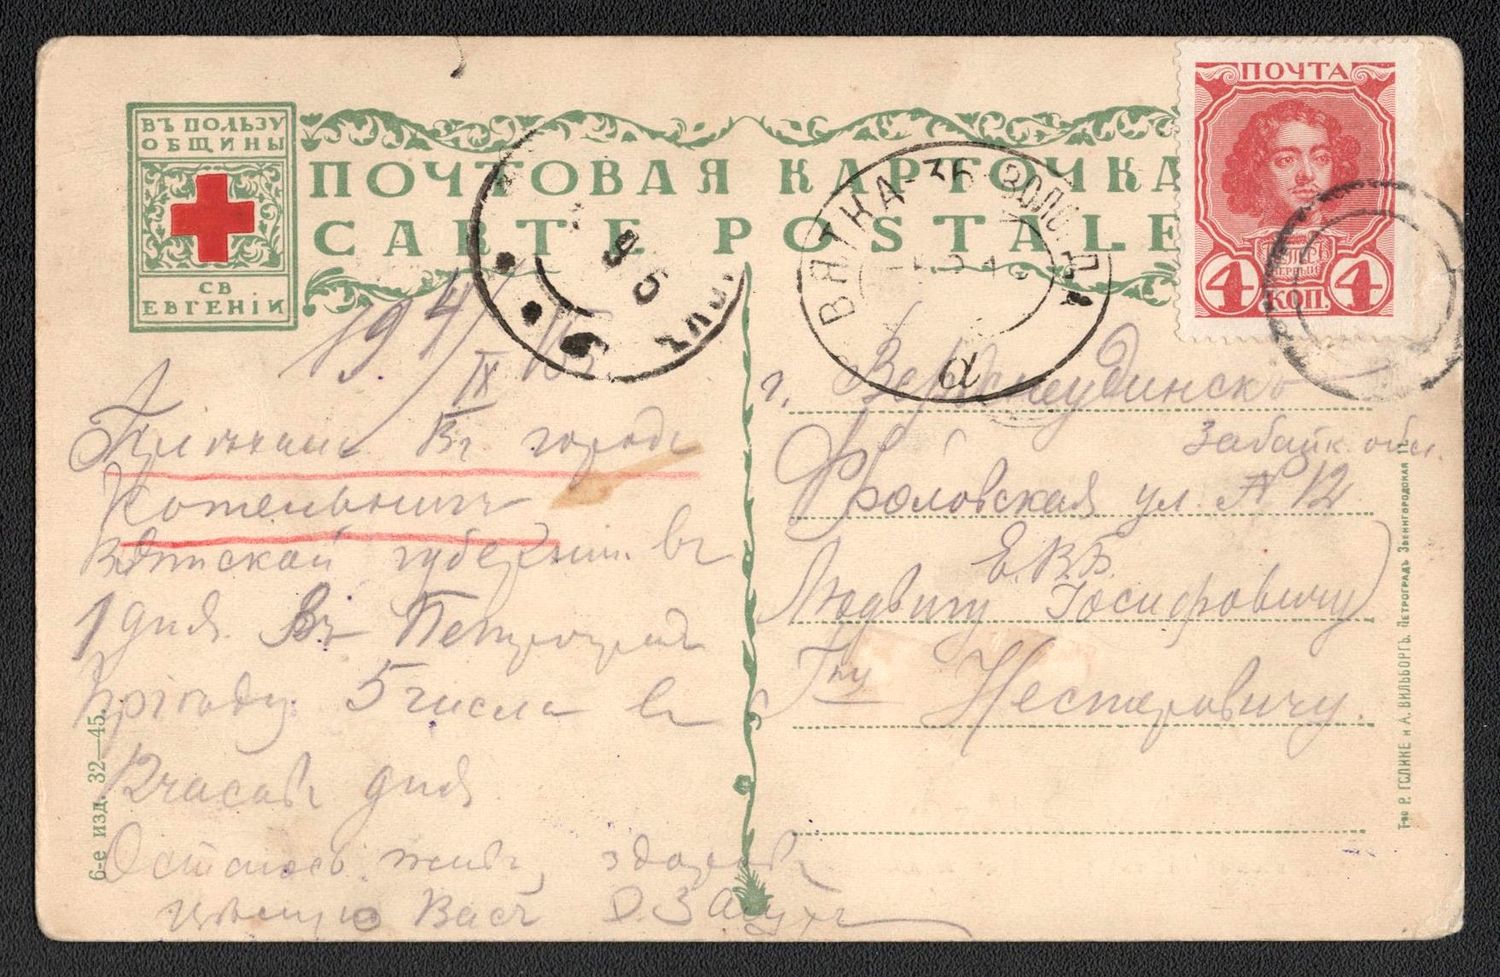 ВЪ ПОЛЬЗУ
ОБЩИНЫ
СВ
ЕВГЕНІИ
ПОЧТОВАЯ КАРТОЧКА
CARTE POSTALE
ПОЧТА
4 КОП. 4
ВЯТКА-36-ВОЛОГДА
а
19 4/IX 16
Въ городъ
Котельничъ
Вятской губерніи. въ
1 дня. Въ Петроградъ
5 числа въ
12 часовъ дня
Остаюсь живъ, здоровъ
цѣлую Васъ
г. Верхнеудинскъ
Забайк. обл.
Фроловская ул. № 12
Е.В.Б.
Людвигу Іосифовичу
Гну Нестеровичу.
6-е изд. 32—45.
Т-во Р. ГОЛИКЕ и А. ВИЛЬБОРГЪ. ПЕТРОГРАДЪ Звенигородская 11.